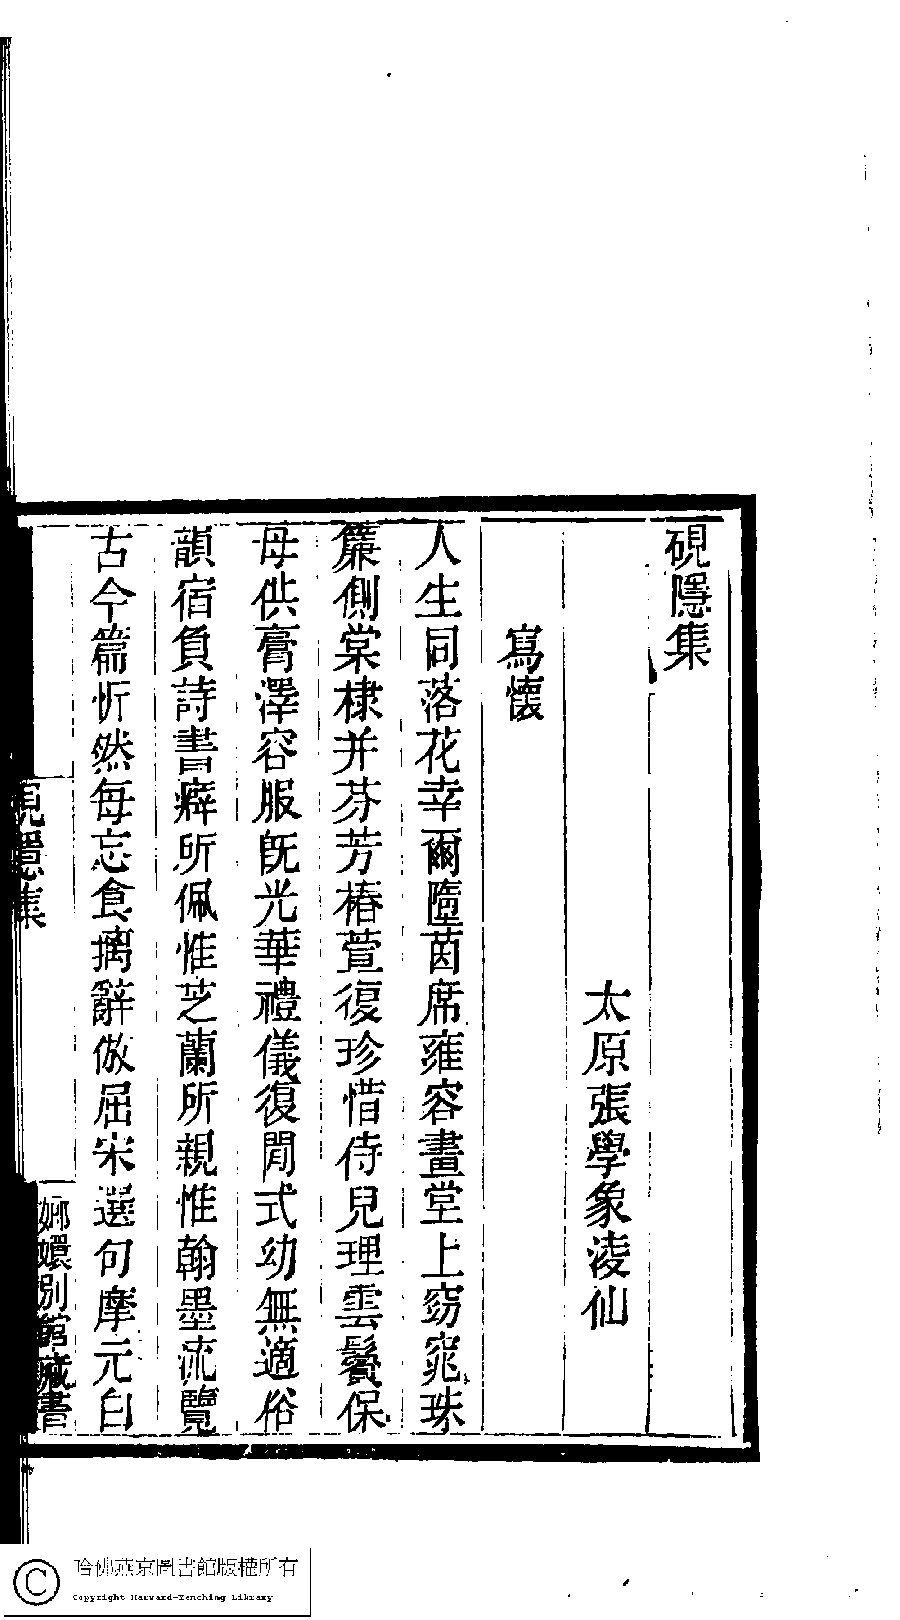 硯隱集
太原張學象淩仙
寫懷
人生同落花幸爾墮茵席雍容畫堂上窈窕珠
簾側棠棣并芬芳椿萱復珍惜侍兒理雲鬟保
母供膏澤容服旣光華禮儀復閒式幼無適俗
韻宿負詩書癖所佩惟芝蘭所親惟翰墨流覽
古今篇忻然每忘食摛辭倣屈宋選句摩元白
硯隱集
嫏嬛別館藏書
哈佛燕京圖書館版權所有
Copyright Harvard-Yenching Library